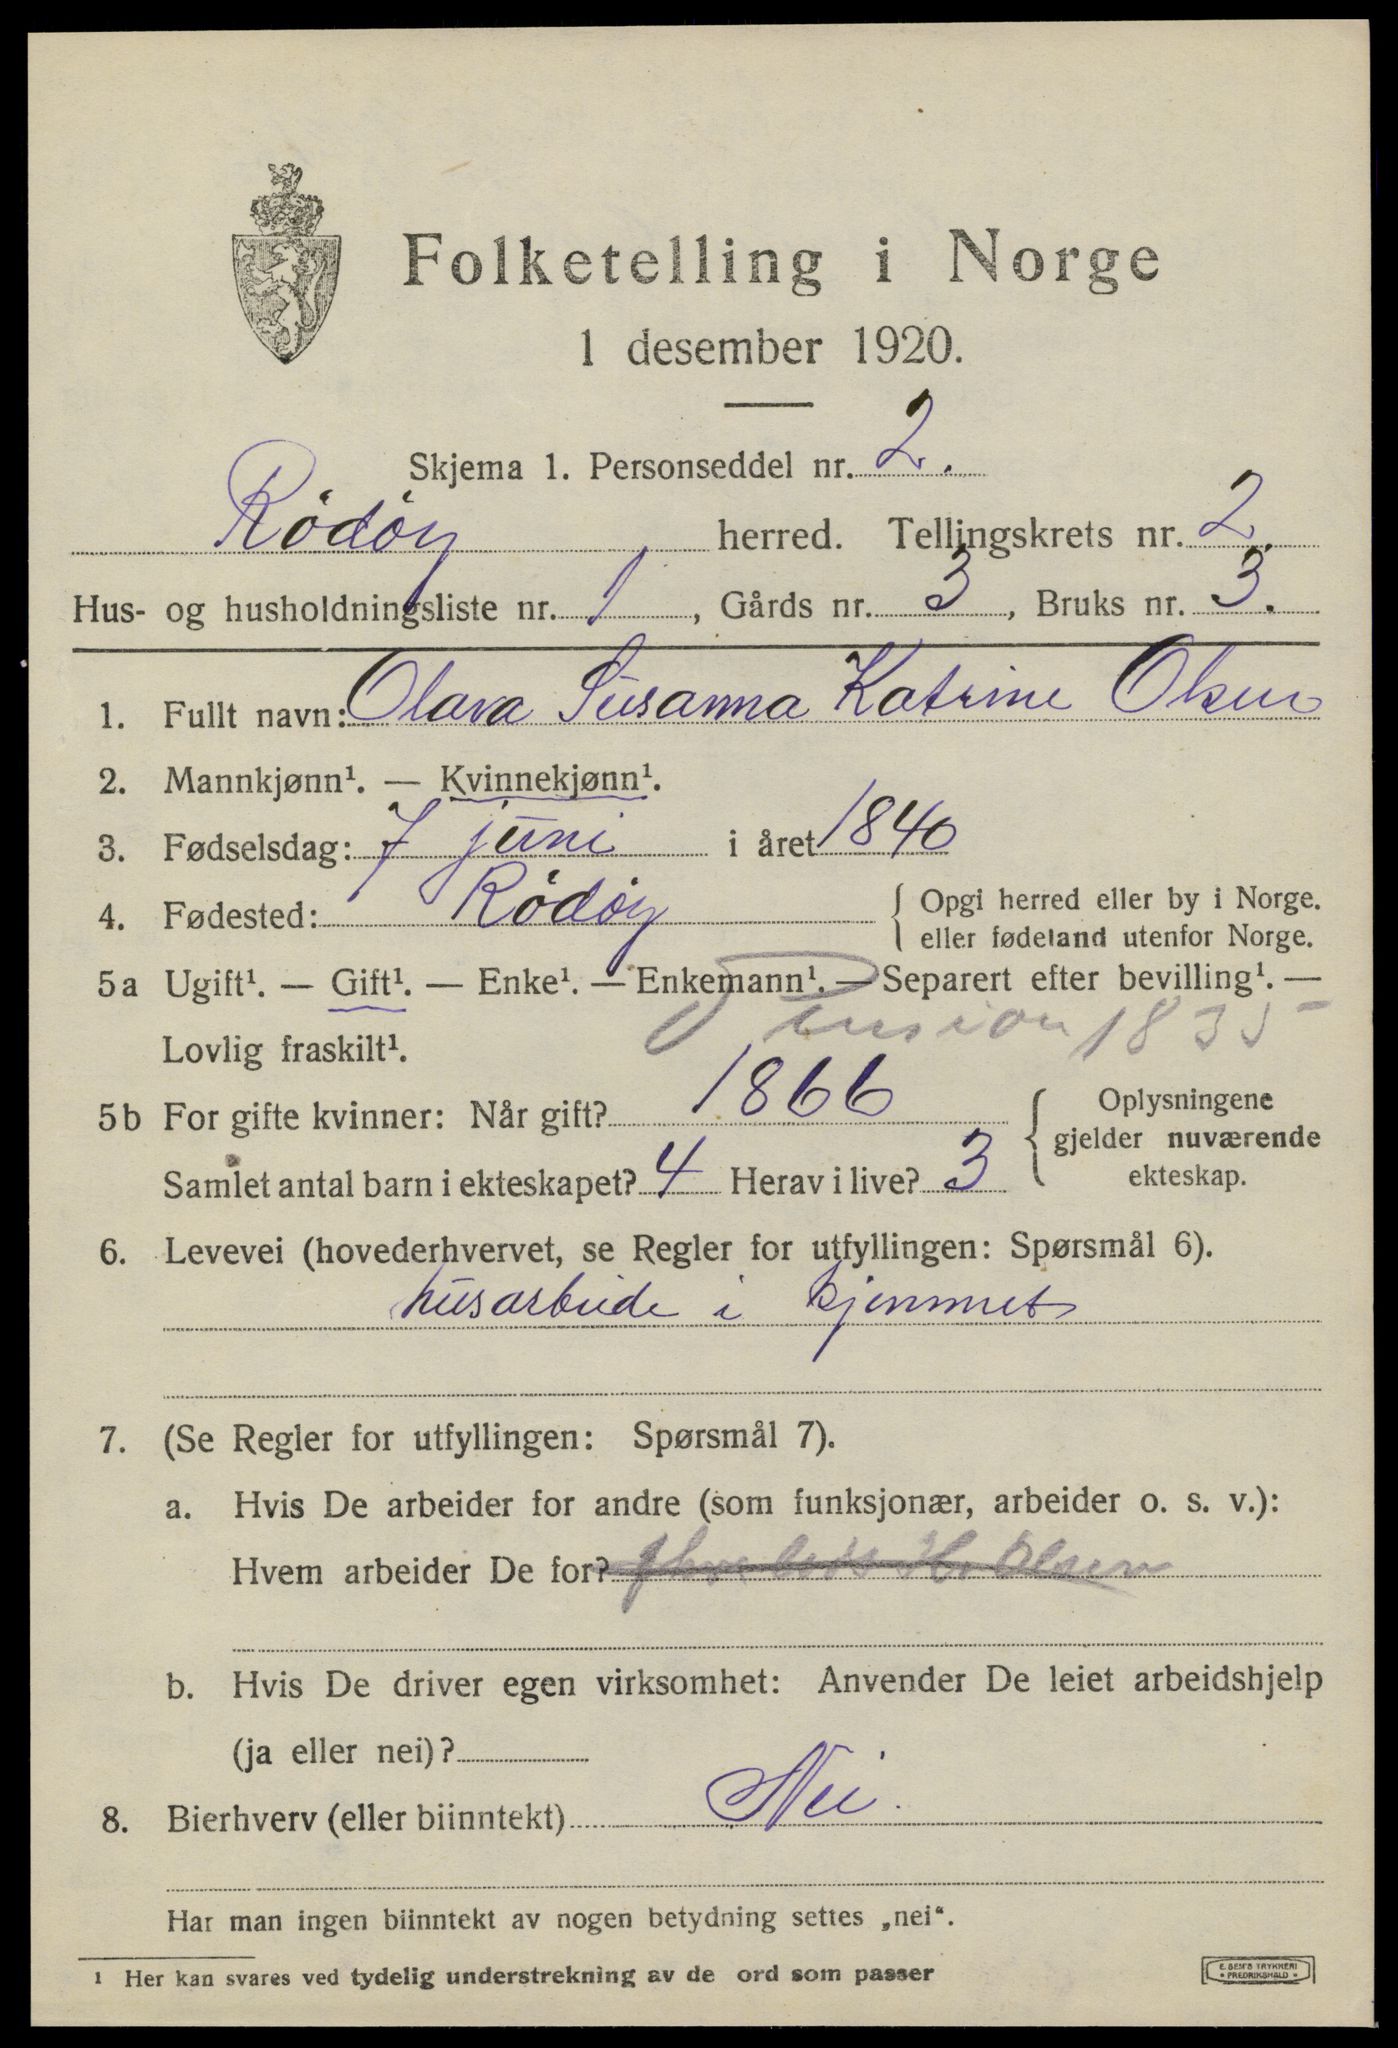 Folketelling i Norge
1 desember 1920.
Skjema 1. Personseddel nr. 2.
Rödöy herred. Tellingskrets nr. 2.
Hus- og husholdningsliste nr. 1, Gårds nr. 3, Bruks nr. 3.
1. Fullt navn: Olava Susanna Katrine Olsen
2. Mannkjønn¹. — Kvinnekjønn¹.
3. Fødselsdag: 7 juni i året 1840
4. Fødested: Rödöy { Opgi herred eller by i Norge.
eller fødeland utenfor Norge.
5a Ugift¹. — Gift¹. — Enke¹. — Enkemann¹. — Separert efter bevilling¹. —
Lovlig fraskilt¹. Pension 1835
5b For gifte kvinner: Når gift? 1866 { Oplysningene
gjelder nuværende
Samlet antal barn i ekteskapet? 4 Herav i live? 3 ekteskap.
6. Levevei (hovederhvervet, se Regler for utfyllingen: Spørsmål 6).
husarbeide i hjemmet
7. (Se Regler for utfyllingen: Spørsmål 7).
a. Hvis De arbeider for andre (som funksjonær, arbeider o. s. v.):
Hvem arbeider De for? Olsen
b. Hvis De driver egen virksomhet: Anvender De leiet arbeidshjelp
(ja eller nei)?
8. Bierhverv (eller biinntekt) Nei.
Har man ingen biinntekt av nogen betydning settes „nei“.
¹ Her kan svares ved tydelig understrekning av de ord som passer
E. SEM'S TRYKKERI
* FREDRIKSHALD *